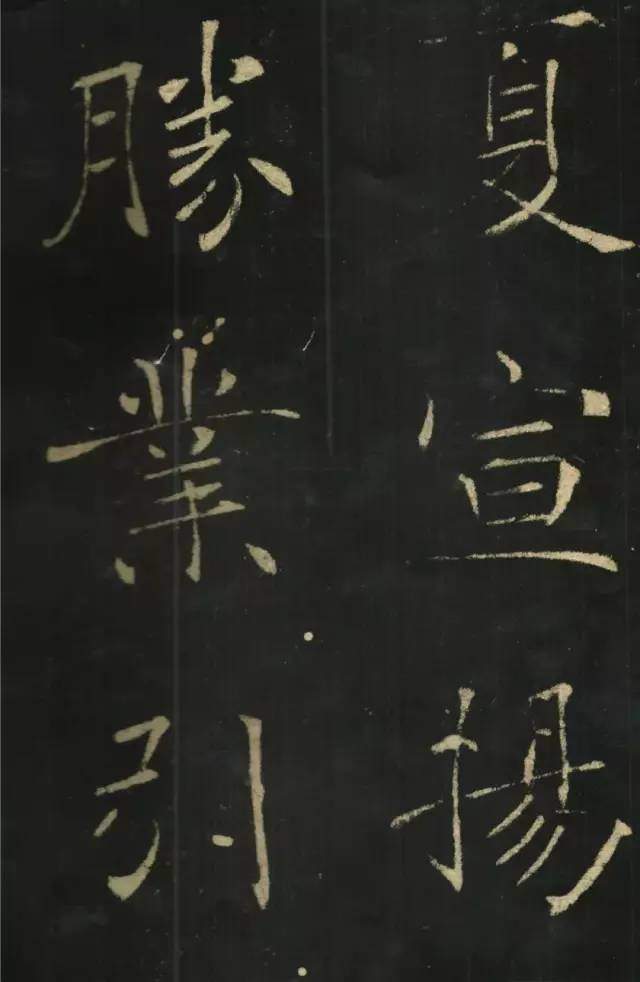 夏宣揚
勝業引